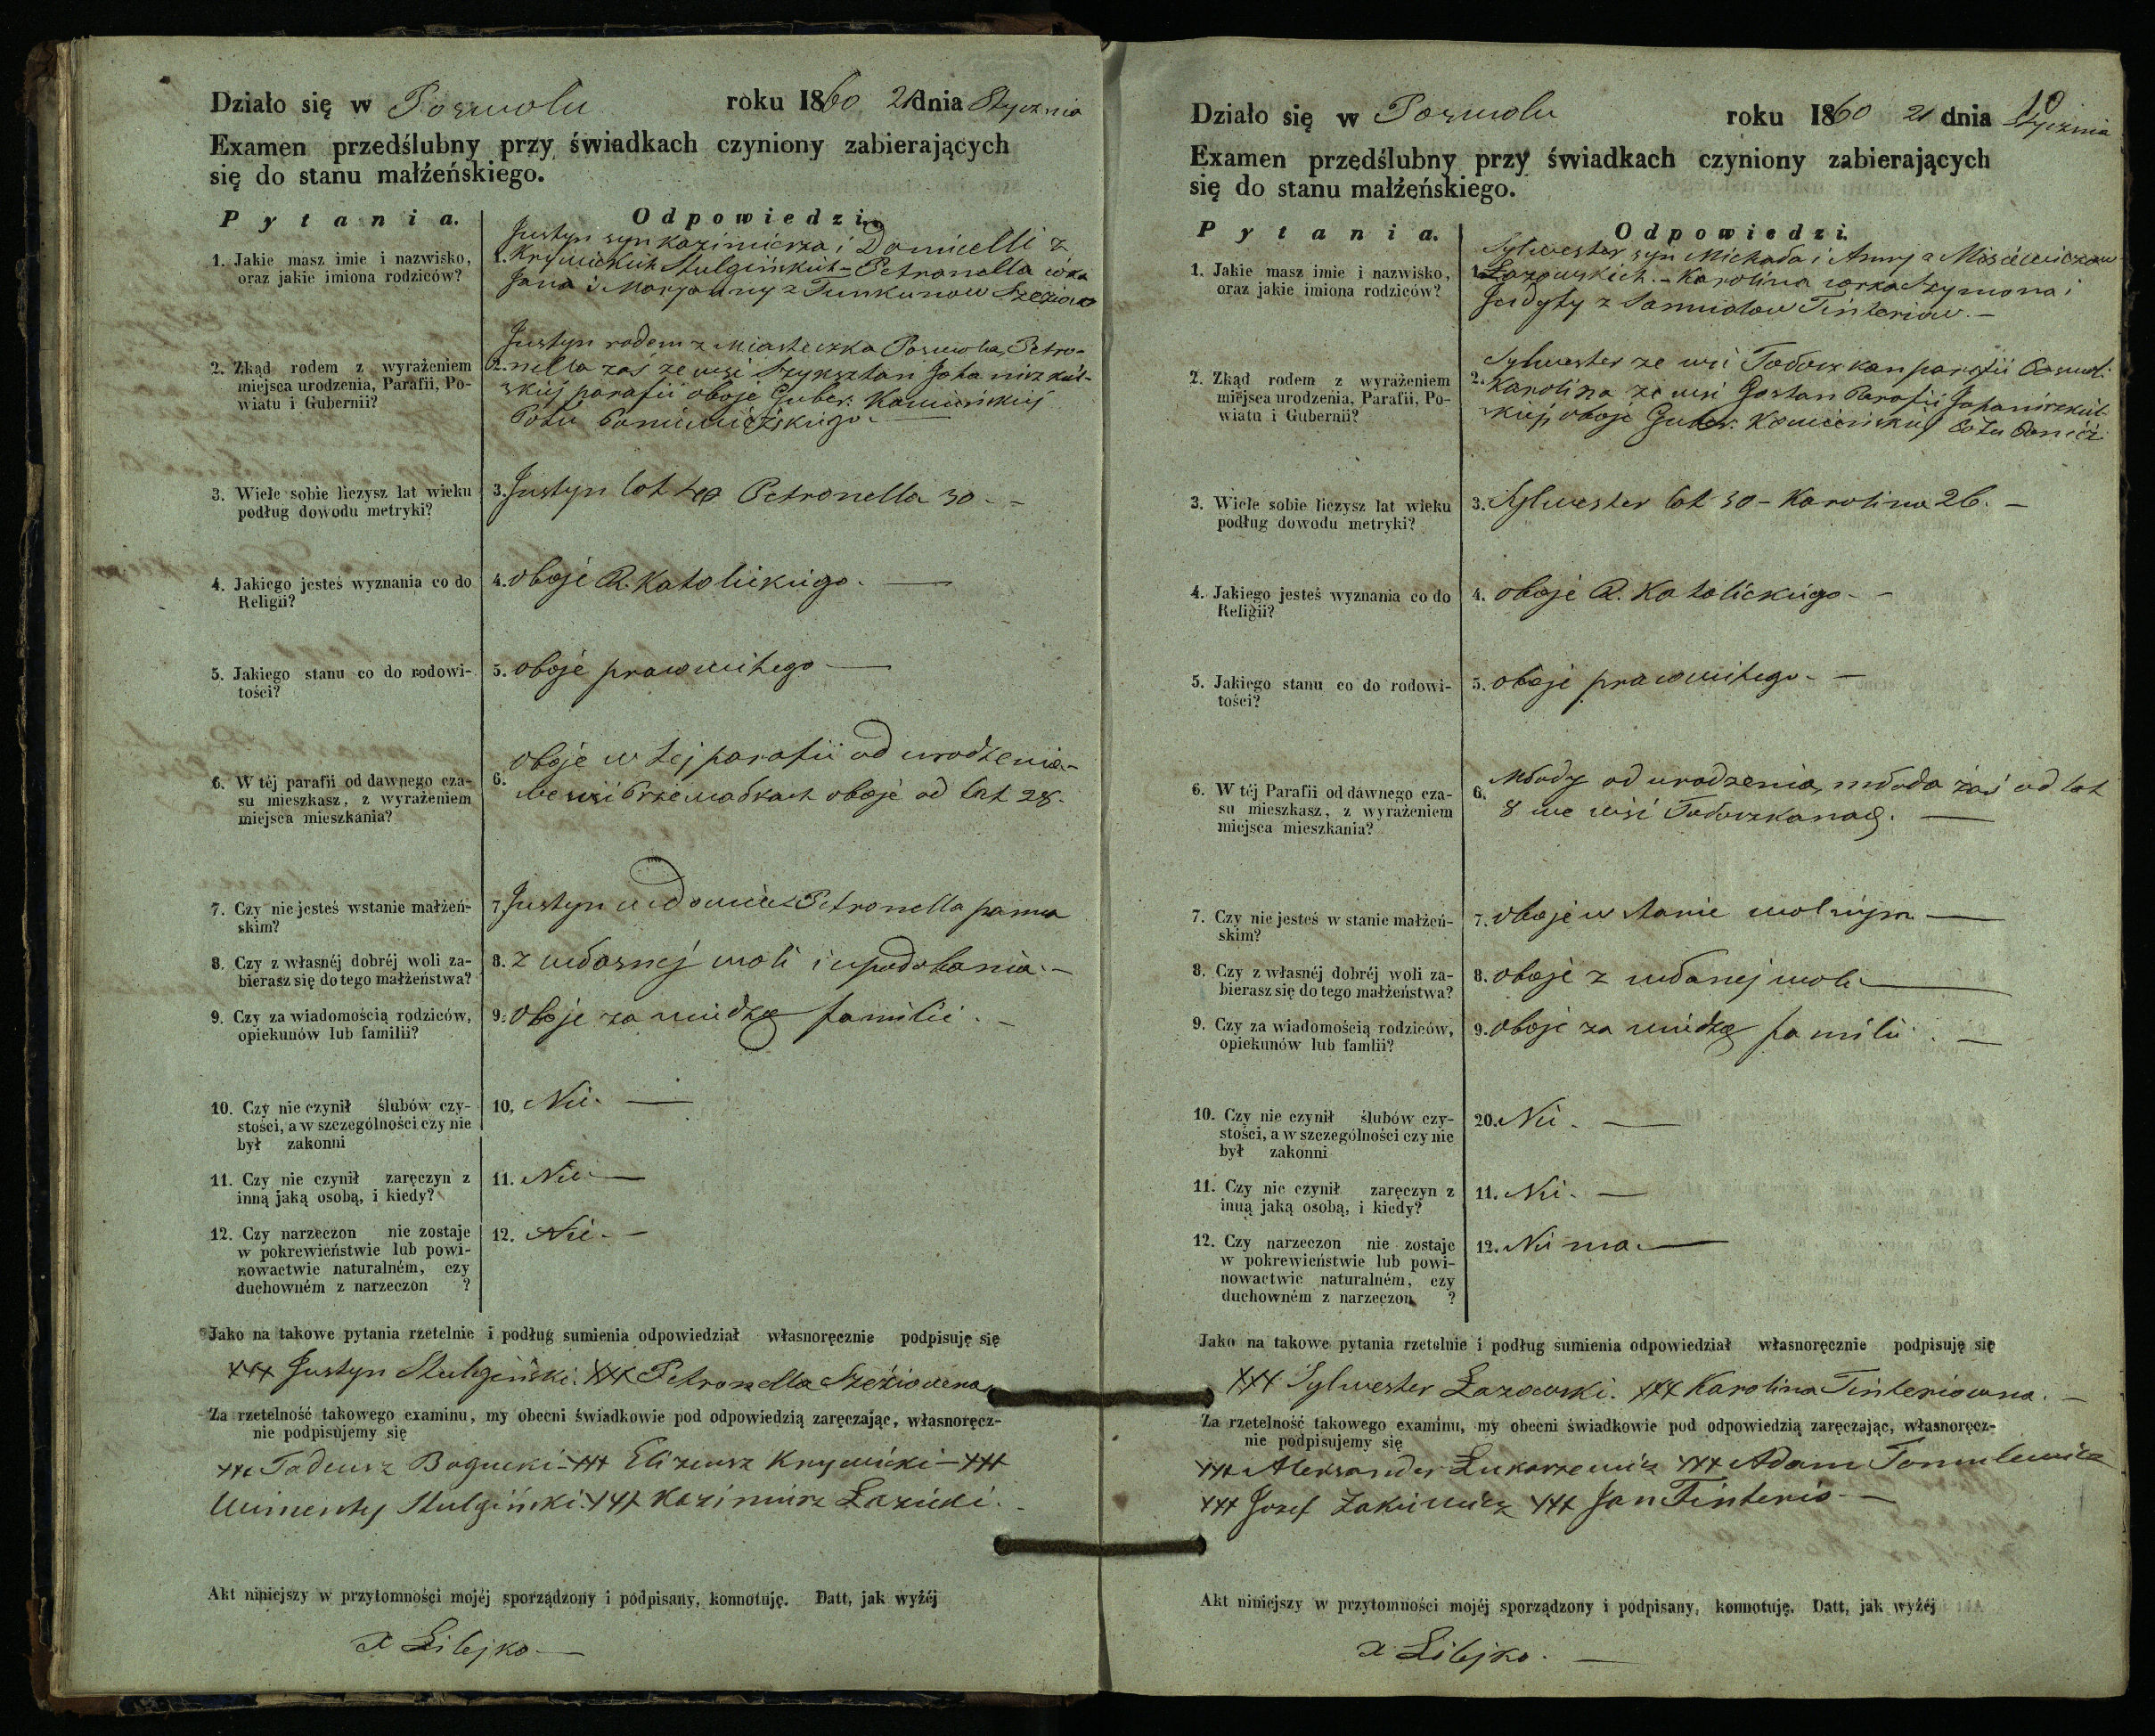 Działo się w Poswolu roku 1860 21 dnia Stycznia
Examen przedślubny przy świadkach czyniony zabierających
się do stanu małżeńskiego.
Pytania. Odpowiedzi.
1. Jakie masz imie i nazwisko,
oraz jakie imiona rodziców?
1. Justyn syn Kazimierza i Domicelli z
Krywickich Stulgińskich – Petronella córka
Jana i Maryanny z
2. Zkąd rodem z wyrażeniem
miejsca urodzenia, Parafii, Po-
wiatu i Gubernii?
2. Justyn rodem z Miasteczka Poswola, Petro-
nella zaś ze wsi Szyksztan Johaniszkiel-
skiej parafii oboje Guber. Kowieńskiej
Potu Poniewieżskiego.
3. Wiele sobie liczysz lat wieku
podług dowodu metryki?
3. Justyn lat Petronella 30 –
4. Jakiego jesteś wyznania co do
Religii?
4. oboje R. Katolickiego. —
5. Jakiego stanu co do rodowi-
tości?
5. oboje prawowitego —
6. W téj parafii od dawnego cza-
su mieszkasz, z wyrażeniem
miejsca mieszkania?
6. oboje w tej parafii od urodzenia –
we wsi oboje od lat 28.
7. Czy nie jesteś wstanie małżeń-
skim?
7. Justyn wdowiec Petronella panna
8. Czy z własnéj dobréj woli za-
bierasz się do tego małżeństwa?
8. z własnej woli i upodobania. –
9. Czy za wiadomością rodziców,
opiekunów lub familii?
9. Oboje za wiedzą familii. –
10. Czy nie czynił ślubów czy-
stości, a w szczególności czy nie
był zakonni
10, Nie. —
11. Czy nie czynił zaręczyn z
inną jaką osobą, i kiedy?
11. Nie —
12. Czy narzeczon nie zostaje
w pokrewieństwie lub powi-
nowactwie naturalném, czy
duchowném z narzeczon ?
12. Nie. –
Jako na takowe pytania rzetelnie i podług sumienia odpowiedział własnoręcznie podpisuję się
+++ Justyn Stulgiński. +++ Petronella
Za rzetelność takowego examinu, my obecni świadkowie pod odpowiedzią zaręczając, własnoręcz-
nie podpisujemy się
+++ Tadeusz Bogucki – +++ Elizeusz Krywicki – +++
Wincenty Stulgiński. +++ Kazimierz Łazicki.
Akt niniejszy w przytomności mojéj sporządzony i podpisany, konnotuję. Datt, jak wyżéj
X Lilejko —
10
Działo się w Poswolu roku 1860 21 dnia Stycznia
Examen przedślubny przy świadkach czyniony zabierających
się do stanu małżeńskiego.
Pytania. Odpowiedzi.
1. Jakie masz imie i nazwisko,
oraz jakie imiona rodziców?
1. Sylwester syn Michała i Anny z
Łazowskich. – Karolina corka Szymona i
Judyty z Tinteriów. –
2. Zkąd rodem z wyrażeniem
miejsca urodzenia, Parafii, Po-
wiatu i Gubernii?
2. Sylwester ze wsi parafii Poswol.
Karolina ze wsi Gostan Parafii Johaniszkiel-
skiej, oboje Guber. Kowieńskiej Potu Ponież.
3. Wiele sobie liczysz lat wieku
podług dowodu metryki?
3. Sylwester lat 30 – Karolina 26. –
4. Jakiego jesteś wyznania co do
Religii?
4. oboje R. Katolickiego – –
5. Jakiego stanu co do rodowi-
tości?
5. oboje prawowitego – –
6. W téj Parafii od dawnego cza-
su mieszkasz, z wyrażeniem
miejsca mieszkania?
6. Młody od urodzenia, młoda zaś od lat
8 we wsi —
7. Czy nie jesteś w stanie małżeń-
skim?
7. oboje w stanie wolnym —
8. Czy z własnéj dobréj woli za-
bierasz się do tego małżeństwa?
8. oboje z własnej woli —
9. Czy za wiadomością rodziców,
opiekunów lub famlii?
9. oboje za wiedzą familii. —
10. Czy nie czynił ślubów czy-
stości, a w szczególności czy nie
był zakonni
20. Nie. —
11. Czy nie czynił zaręczyn z
inną jaką osobą, i kiedy?
11. Nie. —
12. Czy narzeczon nie zostaje
w pokrewieństwie lub powi-
nowactwie naturalném, czy
duchowném z narzeczon ?
12. Nie ma. —
Jako na takowe pytania rzetelnie i podług sumienia odpowiedział własnoręcznie podpisuję się
+++ Sylwester Łazowski. +++ Karolina Tinteriowna. –
Za rzetelność takowego examinu, my obecni świadkowie pod odpowiedzią zaręczając, własnoręcz-
nie podpisujemy się
+++ Aleksander Łukaszewicz +++ Adam Tomulewicz
+++ Jozef Jakiewicz +++ Jan Tinteris —
Akt niniejszy w przytomności mojéj sporządzony i podpisany, konnotuję. Datt, jak wyżéj
X Lilejko. —